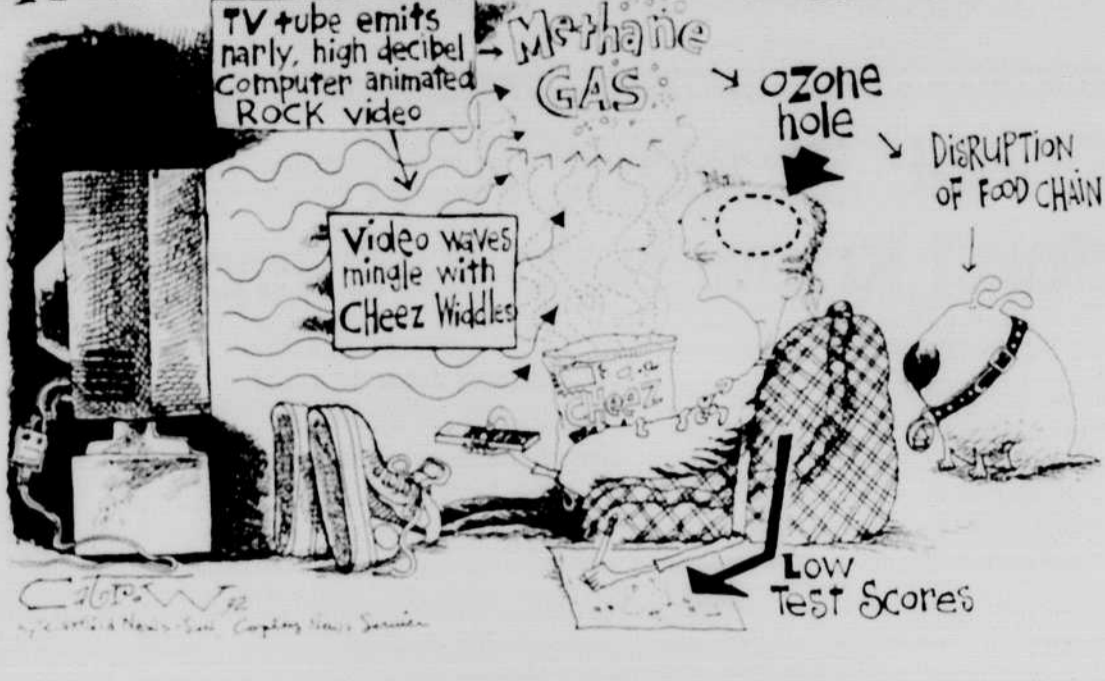 TV tube emits
narly, high decibel
computer animated
ROCK video
Methane
GAS
ozone
hole
DISRUPTION
OF FOOD CHAIN
Video waves
mingle with
CHeez Widdles
CHeez
Low
Test Scores
News Service